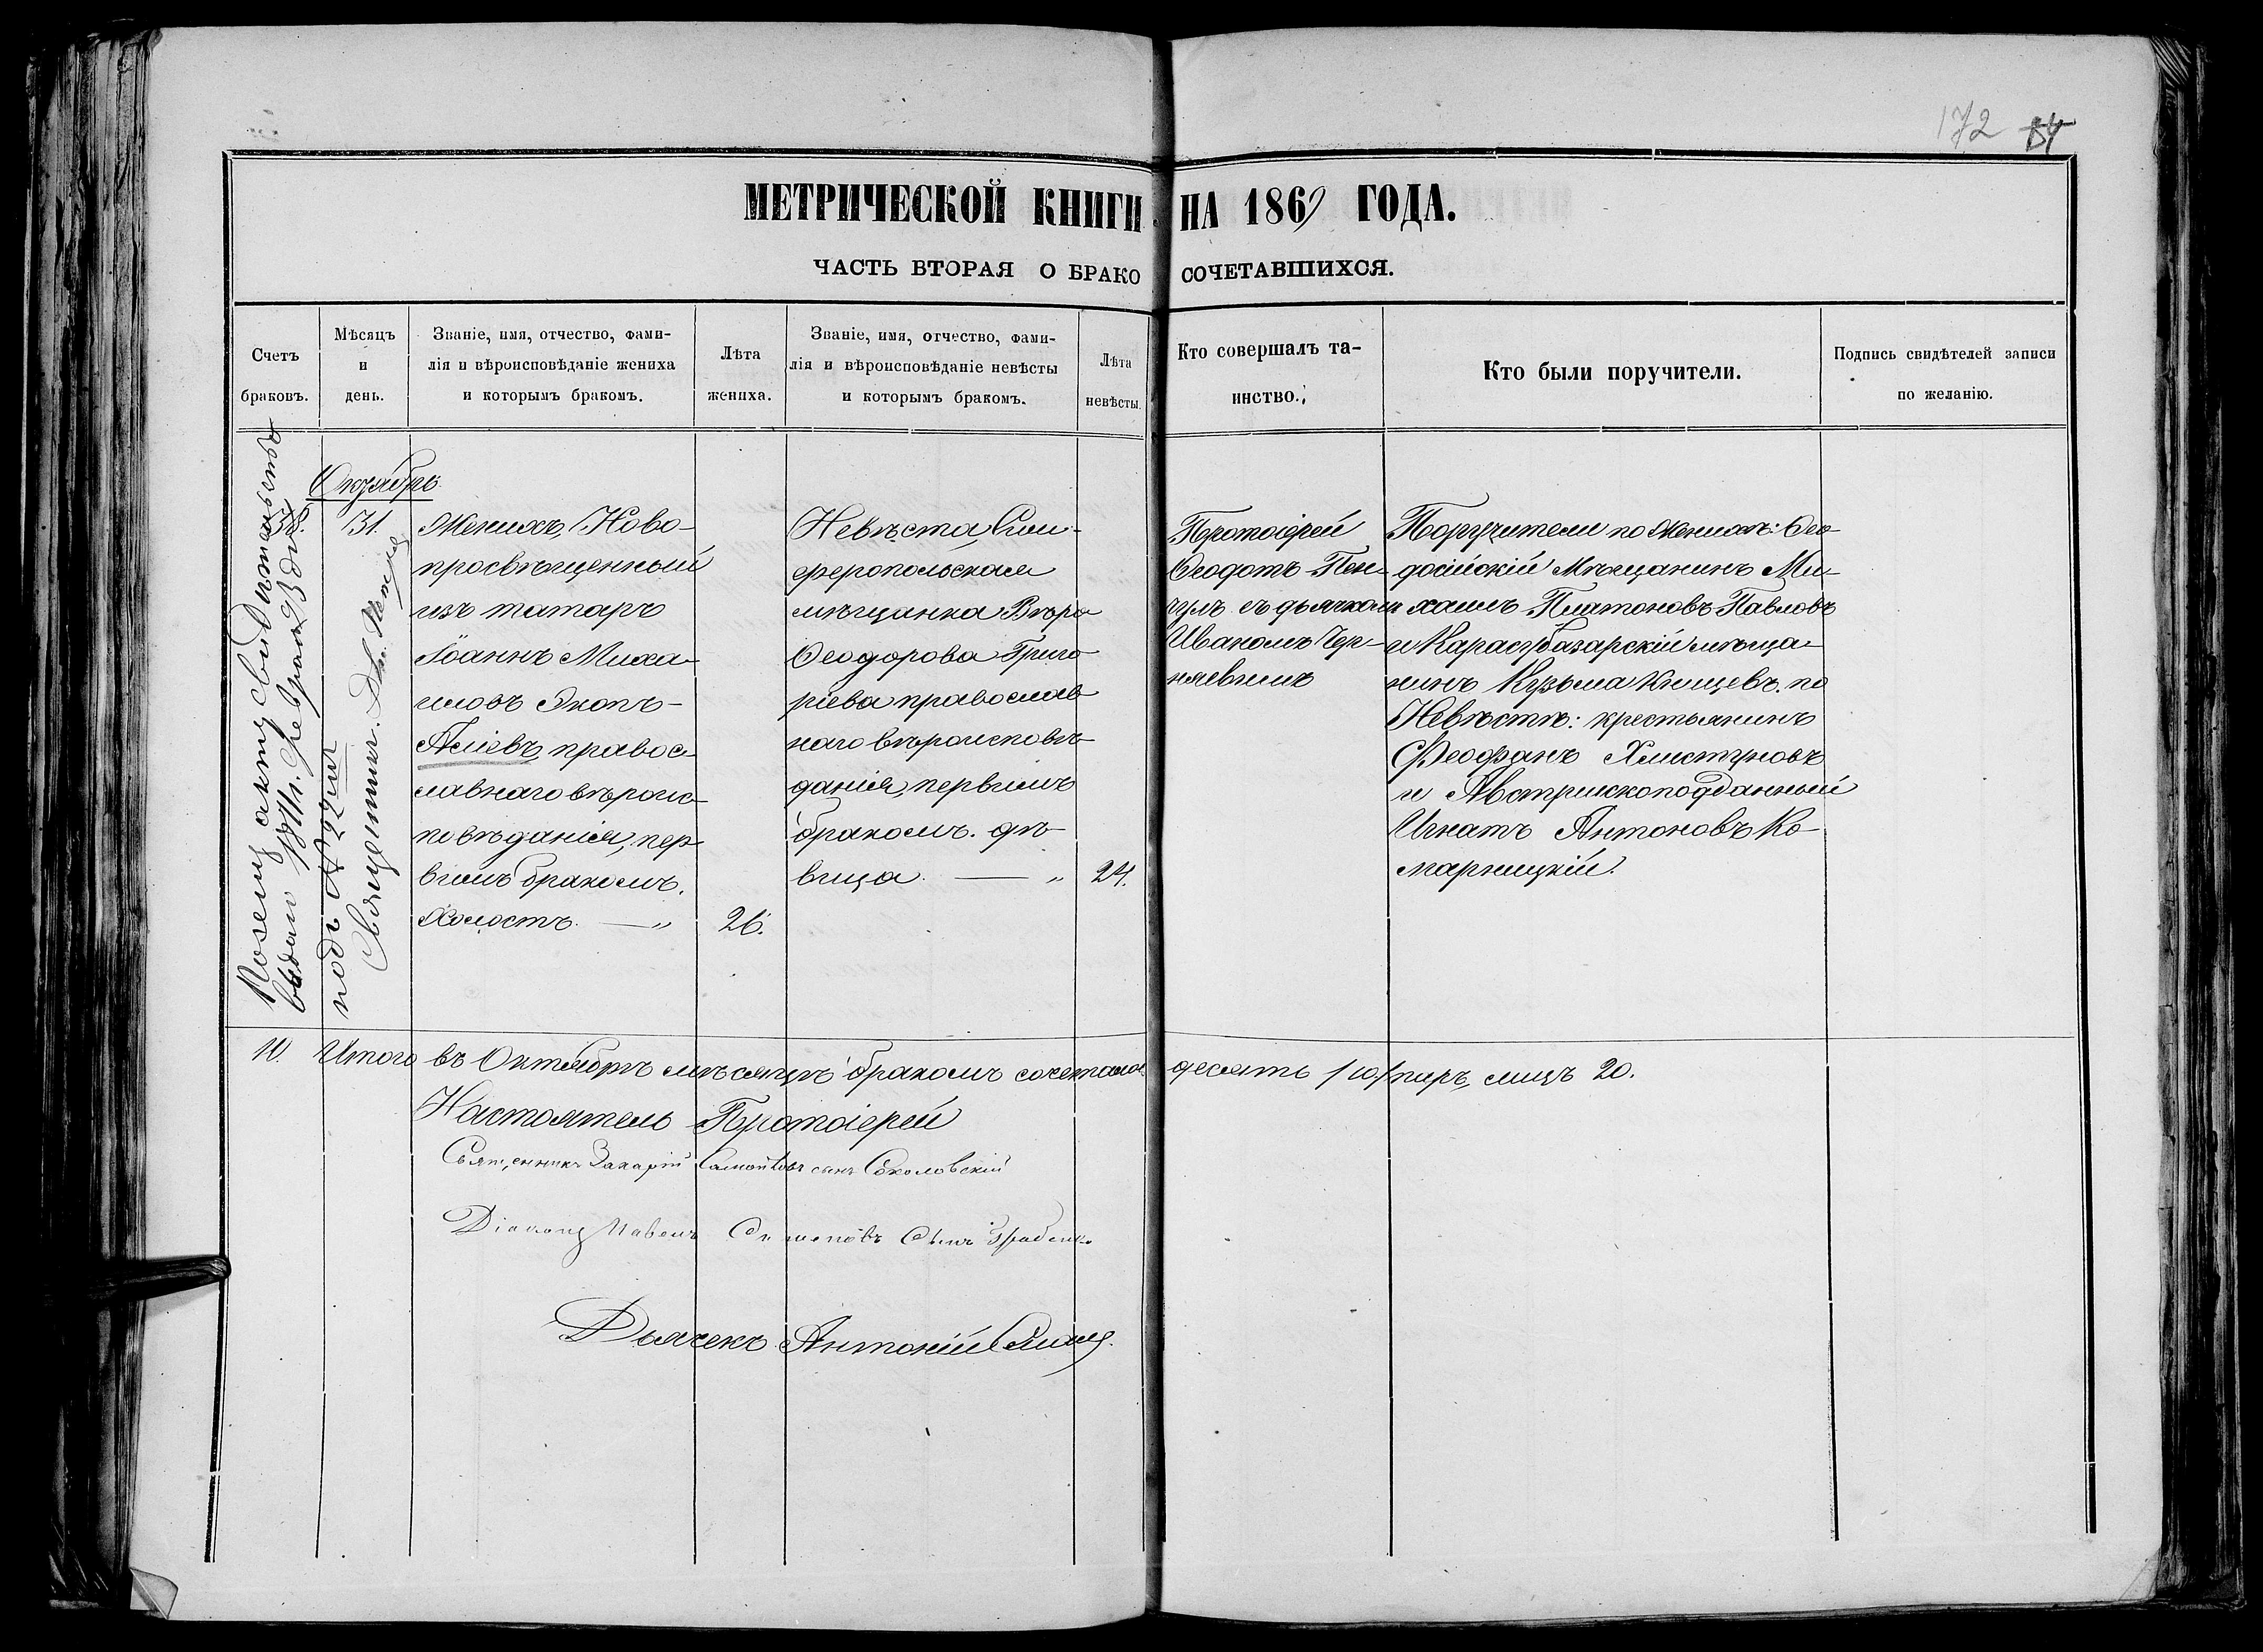 172 84
МЕТРИЧЕСКОЙ КНИГИ НА 1869 ГОДА.
ЧАСТЬ ВТОРАЯ О БРАКОСОЧЕТАВШИХСЯ.
Счетъ
браковъ.
Мѣсяцъ
и
день.
Званіе, имя, отчество, фами-
лія и вѣроисповѣданіе жениха
и которымъ бракомъ.
Лѣта
жениха.
Званіе, имя, отчество, фами-
лія и вѣроисповѣданіе невѣсты
и которымъ бракомъ.
Лѣта
невѣсты.
Кто совершалъ та-
инство.
Кто были поручители.
Подпись свидѣтелей записи
по желанію.
По сему акту свидѣтельство
выдан Февраля 3 дня
подъ № 22
Священникъ
38.
Октябрь
31.
Женихъ, Ново-
просвѣщенный
изъ татаръ
Іоаннъ Миха-
иловъ Экопъ-
Асіевъ, правос-
лавнаго вѣроис-
повѣданія, пер-
вымъ бракомъ.
Холостъ. — „
26.
Невѣста, Сим-
феропольская
мѣщанка Вѣра
Ѳеодорова Григо-
ріева православ-
наго вѣроисповѣ-
данія, первымъ
бракомъ. дѣ-
вица. — „
24.
Протоіерей
Ѳеодотъ Пен-
чулъ съ дьячкомъ
Иваномъ Чер-
нявскимъ
Поручители по Женихѣ: Ѳео-
досійскій Мѣщанинъ Ми-
хаилъ Платоновъ Павловъ
и Карасубазарскій мѣща-
нинъ Кузьма Книщевъ. по
Невѣстѣ: крестьянинъ
Феофанъ Хлистуновъ
и Австрійскоподданный
Игнатъ Антоновъ Ко-
марницкій.
10. Итого въ Октябрѣ мѣсяцѣ бракомъ сочеталось десять /10/ паръ, лицъ 20.
Настоятель Протоіерей
Священникъ Захарій Самойловъ сынъ Соколовскій
Діаконъ Павелъ Симеоновъ Сынъ
Дьячекъ Антоній